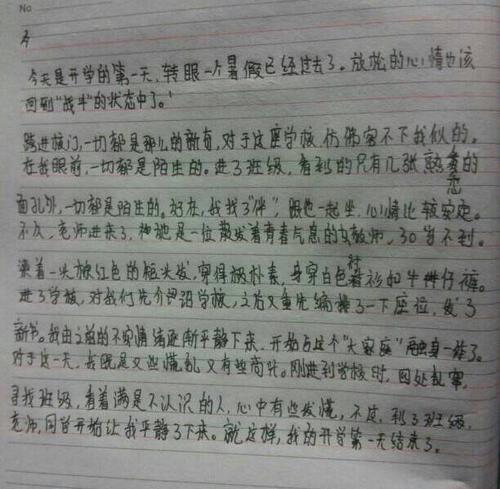 No
今
今天是开学的第一天,转眼一个暑假已经过去了。放松的心情也该
回到"战斗"的状态中了。
跨进校门,一切都是那么的新奇,对于这座学校,仿佛容不下我似的。
在我眼前,一切都是陌生的。进了班级,看到的只有几张熟悉的
面孔外,一切都是陌生的。好在,我找了"伴",跟他一起坐,心情比较安定。
不久,老师进来了,她是一位散发着青春气息的女教师,30岁不到。
染着一头棕红色的短头发,穿得极朴素,身穿白色衬衫和牛仔裤。
进了学校,对我们先介绍学校,之后又重先编操了一下座位,发了
新书。我由之前的不安情绪逐渐平静下来,开始与这个"大家庭"融身一体了。
对于这一天,我既是又些慌乱又有些商叶。刚进到学校时,四处乱窜,
寻找班级,看着满是不认识的人,心中有些发慌,不过,到了班级,
老师,同学开始让我平静了下来。就这样,我的开学第一天结束了。